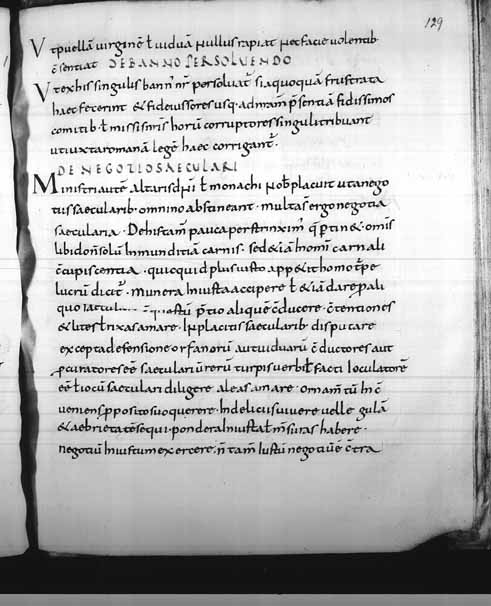 129
Ut puellā uirginē ł uiduā nullus rapiat nec faciē uolentib;
c̄sentiat DE BANNO PERSOLUENDO
Ut ex his singulis bann̄ nr̄ persoluat̃ si aquoquā frustrata
haec fecerint & fideiussores usq· ad nr̄am p̄sentiā fidissimos
comitib· ł missis nr̄is horū corruptores singuli tribuant
ut iuxta romanā legē haec corrigant̃·
DE NEGOTIO SAECULARI
Ministri autē altaris dñi ł monachi nob̄ placuit ut anego
tiis saecularib· omnino abstineant· multa s̄ ergo negotia
saecularia· De his tam̄ pauca perstrinxim̃ q̄ p̄tin& om̄is
libido n̄ solū Inmunditia carnis· sed & iā In om̄i carnali
c̄cupiscentia· quicquid plus iusto app&it homo t̃pe
lucrū dicit̃· munera Iniusta accipere ł & iā dare p ali
quo p̄tio aliquē c̄ducere· c̄tentiones
& lites ł rixas amare· In placitis saecularib· disputare
excepta defensione orfanorū aut uiduarū c̄ductores aut
ꝓcuratores eē saeculariū rerū turpis uerbi ł facti Ioculatorē
eē ł iocū saeculari diligere aleas amare· ornam̄tū In c̄
ueniens ꝓposito suo querere· In deliciis uiuere uelle gulā
& aebrietatē sequi· pondera Iniusta ł m̄suras habere·
negotiū Iniustum exercere; n̄ tam̄ Iustū negotiū ē c̄tra